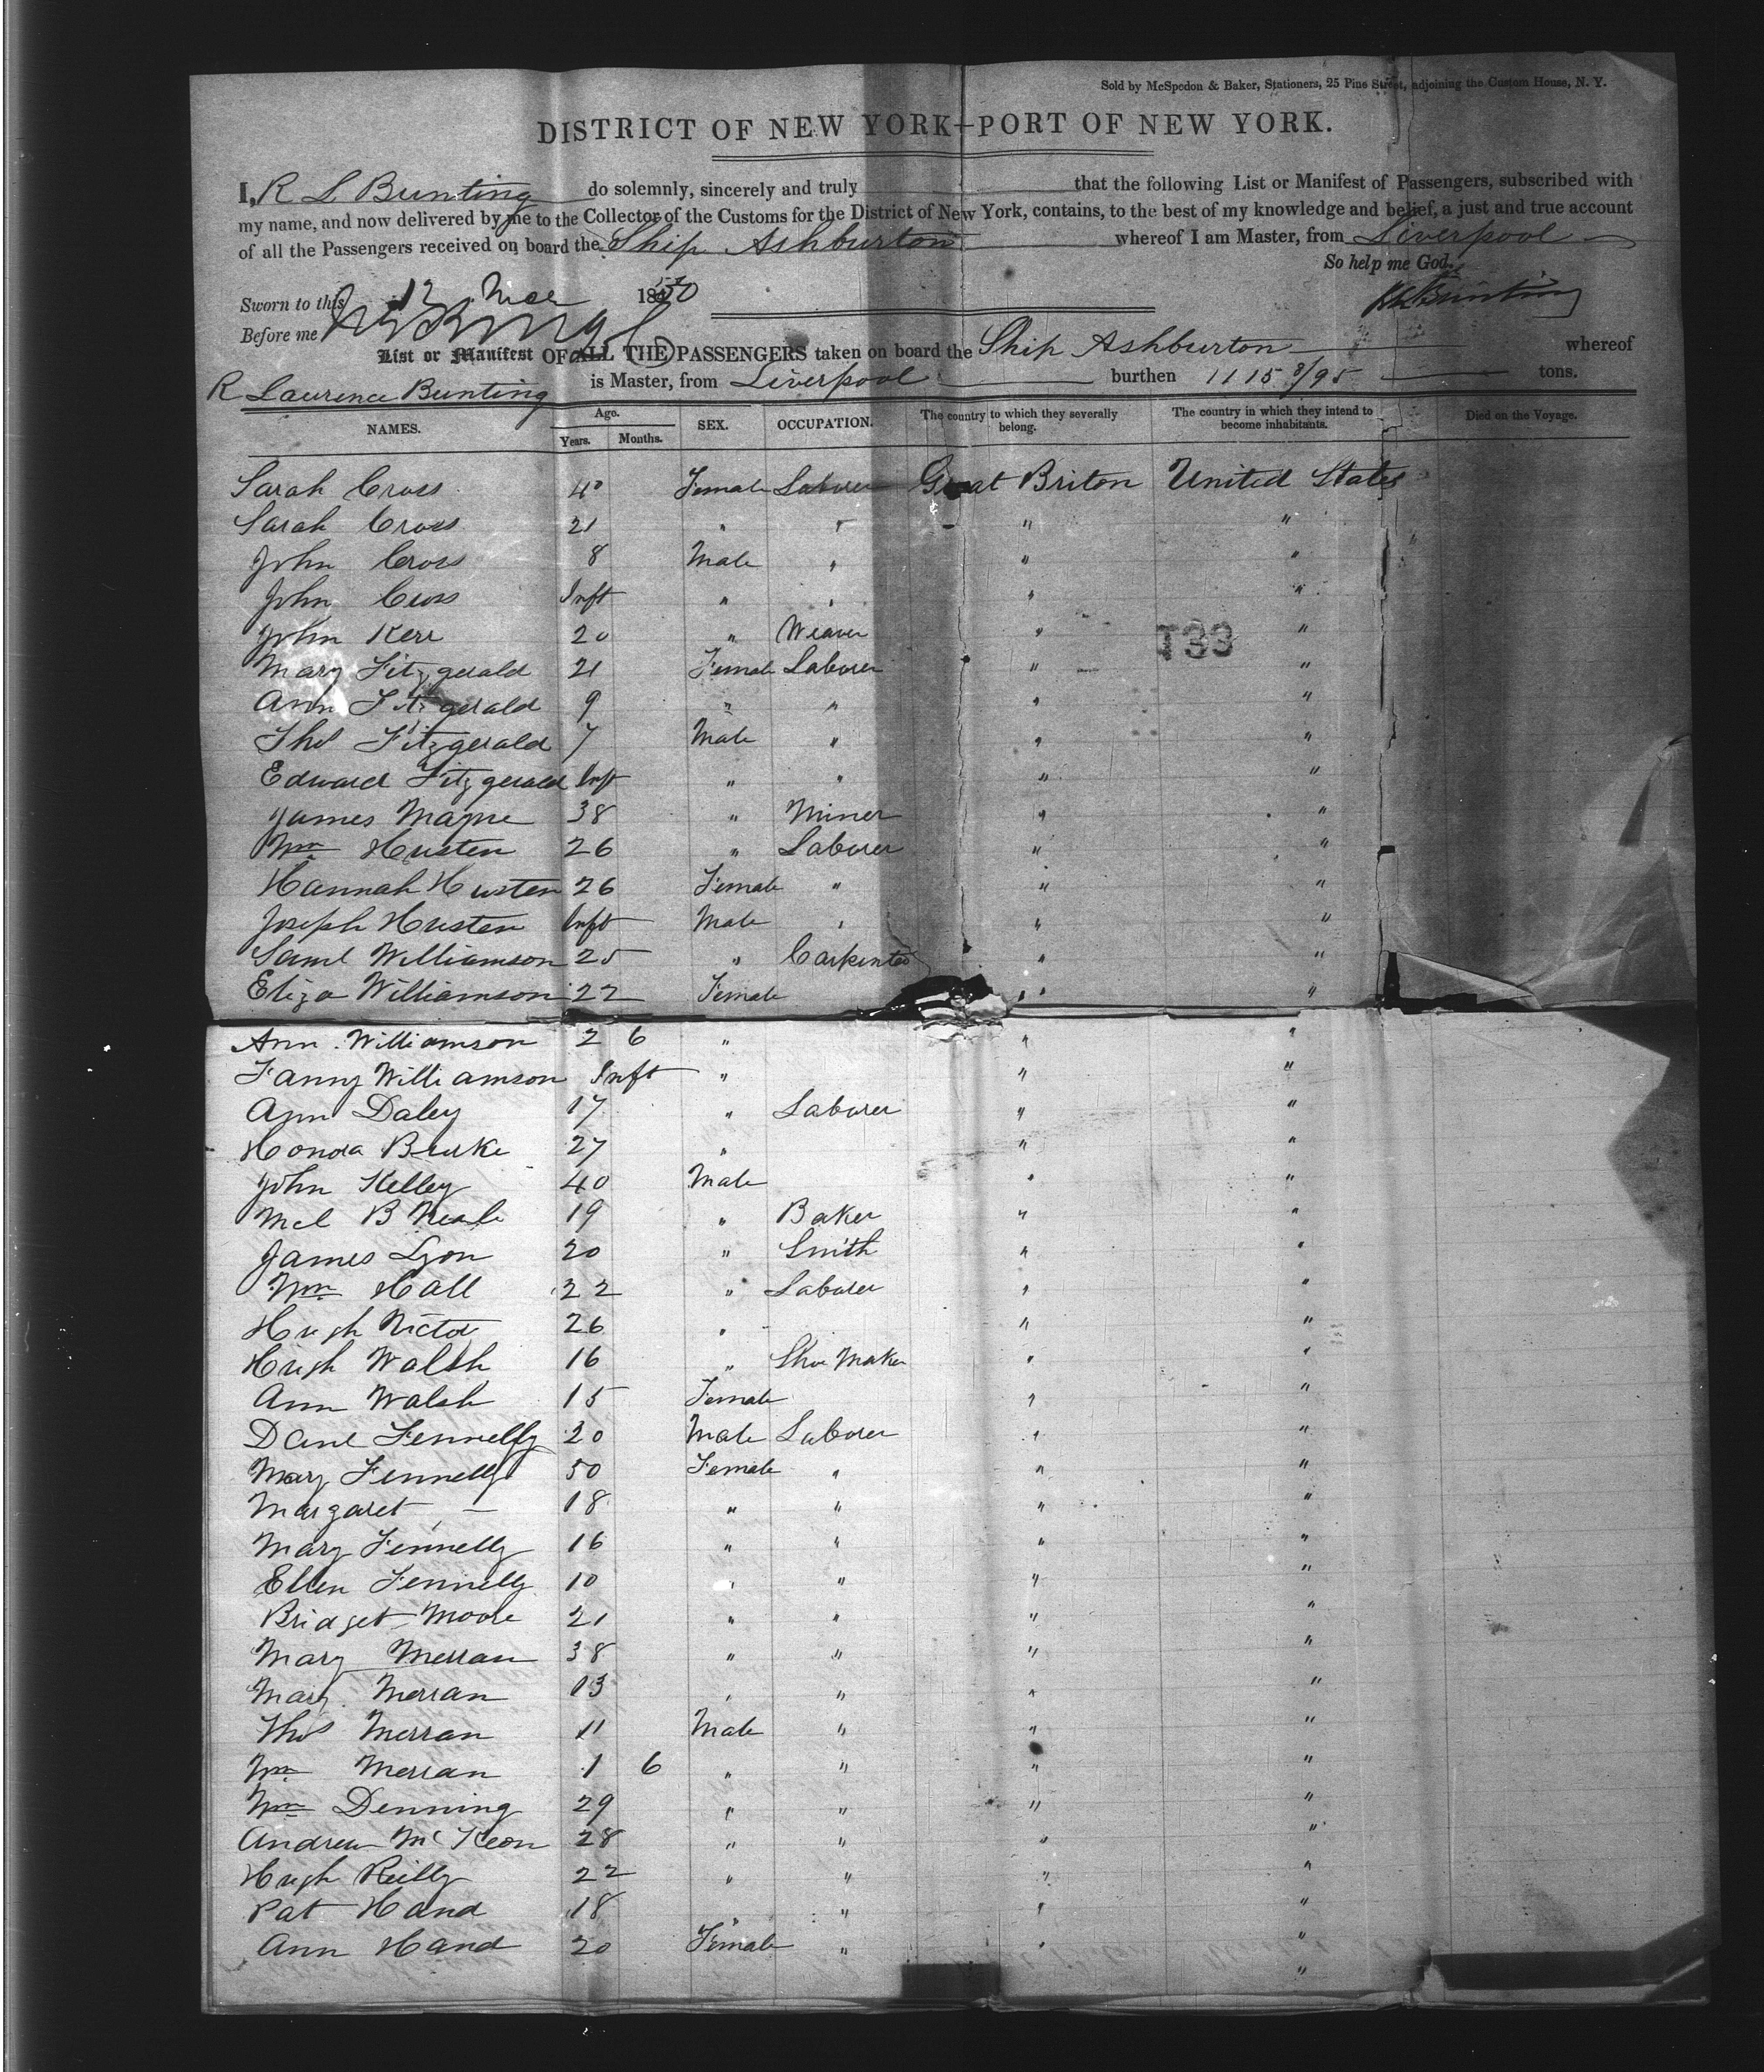 Sold by McSpedon & Baker, Stationers, 25 Pine Street, adjoining the Custom House, N. Y.
DISTRICT OF NEW YORK—PORT OF NEW YORK.
I, R L Bunting do solemnly, sincerely and truly that the following List or Manifest of Passengers, subscribed with
my name, and now delivered by me to the Collector of the Customs for the District of New York, contains, to the best of my knowledge and belief, a just and true account
of all the Passengers received on board the Ship Ashburton whereof I am Master, from Liverpool
So help me God.
Sworn to this 12 1850
R L Bunting
Before me
List or Manifest OF ALL THE PASSENGERS taken on board the Ship Ashburton whereof
R Laurence Bunting is Master, from Liverpool burthen 1115 8/95 tons.
NAMES. Age. Years. Months. SEX. OCCUPATION. The country to which they severally belong. The country in which they intend to become inhabitants. Died on the Voyage.
Sarah Cross 40 Female Laborer Great Briton United States
Sarah Cross 21 " " " "
John Cross 8 Male " " "
John Cross Inft " " " "
John Kerr 20 " Weaver " "
133
Mary Fitzgerald 21 Female Laborer " "
Ann Fitzgerald 9 " " " "
Thos Fitzgerald 7 Male " " "
Edward Fitzgerald Inft " " " "
James Magne 38 " Miner " "
Wm Husten 26 " Laborer " "
Hannah Husten 26 Female " " "
Joseph Husten Inft Male " " "
Saml Williamson 25 " Carpenter " "
Eliza Williamson 22 Female " "
Ann Williamson 2 6 " " "
Fanny Williamson Inft " " "
Ann Daley 17 " Laborer " "
Honora Burke 27 " " "
John Kelley 40 Male " "
Mcl B 19 " Baker " "
James Lyon 20 " Smith " "
Wm Hall 22 " Laborer " "
Hugh 26 " " "
Hugh Walsh 16 " Shoe Maker " "
Ann Walsh 15 Female " "
Danl Fennelly 20 Male Laborer " "
Mary Fennelly 50 Female " " "
Margaret — 18 " " " "
Mary Fennelly 16 " " " "
Ellen Fennelly 10 " " " "
Bridget Moore 21 " " " "
Mary Merran 38 " " " "
Mary Merran 13 " " " "
Thos Merran 11 Male " " "
Wm Merran 1 6 " " " "
Wm Denning 29 " " " "
Andrew McKeon 28 " " " "
Hugh Reilly 22 " " " "
Pat Hand 18 " " " "
Ann Hand 20 Female " " "
"